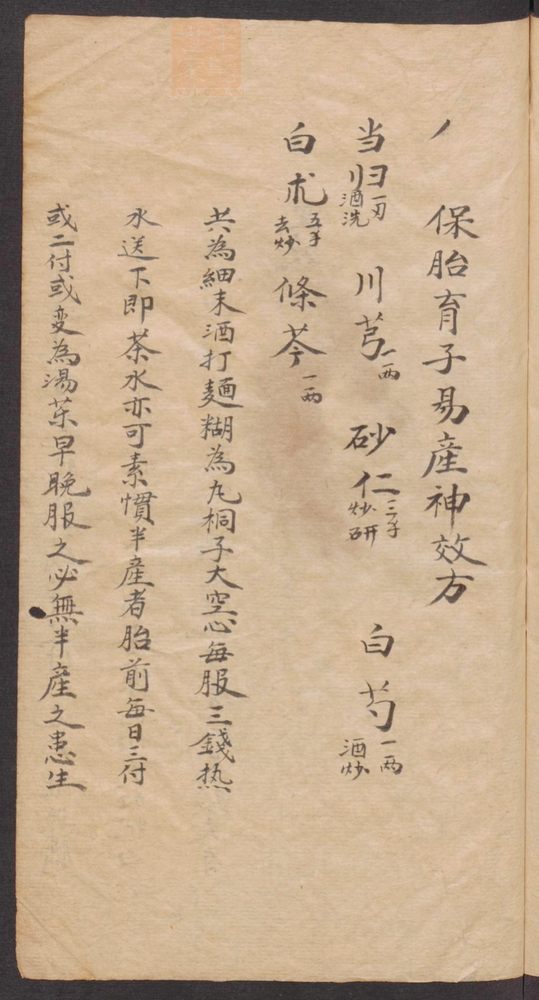 保胎育子易産神效方
当归一两酒洗 川芎一两 砂仁三钱炒研 白芍一两酒炒
白朮五钱去炒 條芩一两
共為細末酒打麵糊為丸桐子大空心每服三錢热
水送下即茶水亦可素慣半産者胎前每日三付
或二付或变為湯茶早晚服之必無半産之患生